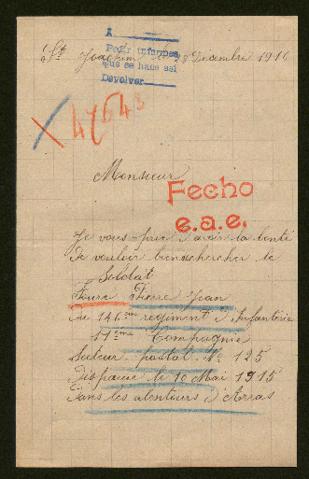 A
Pedir informes
que se hace así
Devolver
St Joachim le 28 Décembre 1916
X 47643
Monsieur
Fecho
e.a.e.
Je vous prie d'avoir la bonté
de vouloir bien rechercher le
Soldat
Pierre Jean
du 146ème régiment d'Infanterie
11ème Compagnie
Secteur postal No 125
Disparu le 10 Mai 1915
Dans les alentours d'Arras